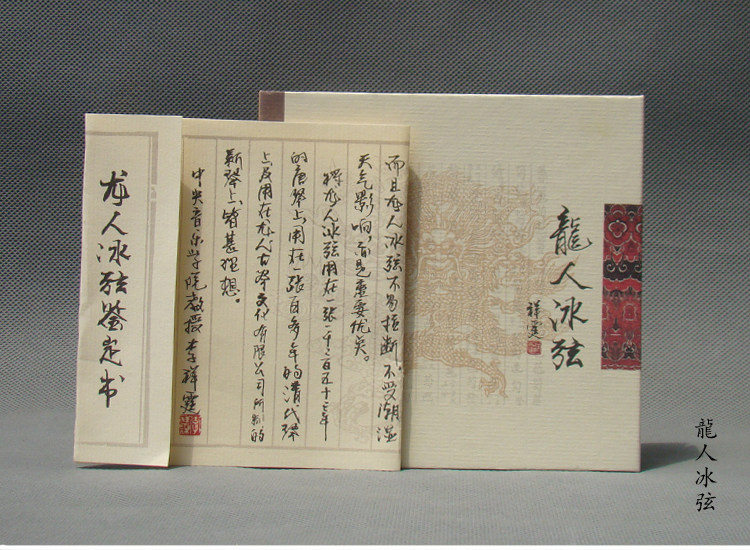 龙人冰弦鉴定书
而且龙人冰弦不易拉断。不受潮湿
天气影响,是重要优点。
将龙人冰弦用在一张一千二百五十二年
的唐琴上,用在一张百多年的清代琴
上及用在龙人古琴文化有限公司所斫的
新琴上皆甚理想。
中央音乐学院教授李祥霆
龍人冰弦
祥霆
龍人冰弦